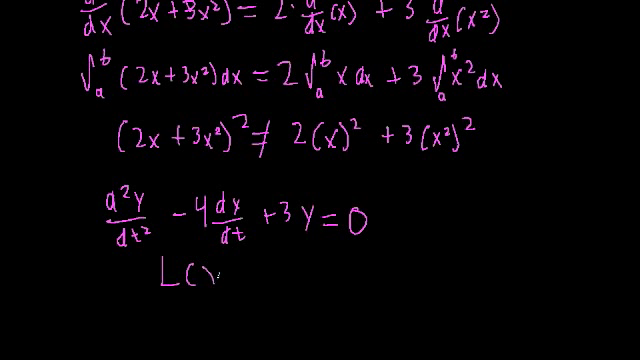 d/dx (2x+3x²) = 2·d/dx(x) + 3 d/dx(x²)
∫ₐᵇ (2x+3x²)dx = 2∫ₐᵇ x dx + 3∫ₐᵇ x² dx
(2x+3x²)² ≠ 2(x)² + 3(x²)²
d²y/dt² - 4 dy/dt + 3y = 0
L(y